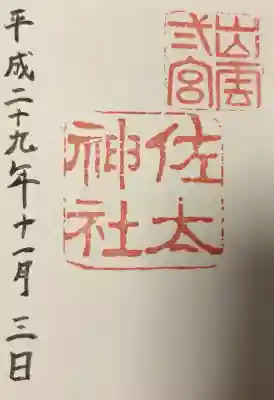 出雲弎宮
佐太神社
平成二十九年十一月三日